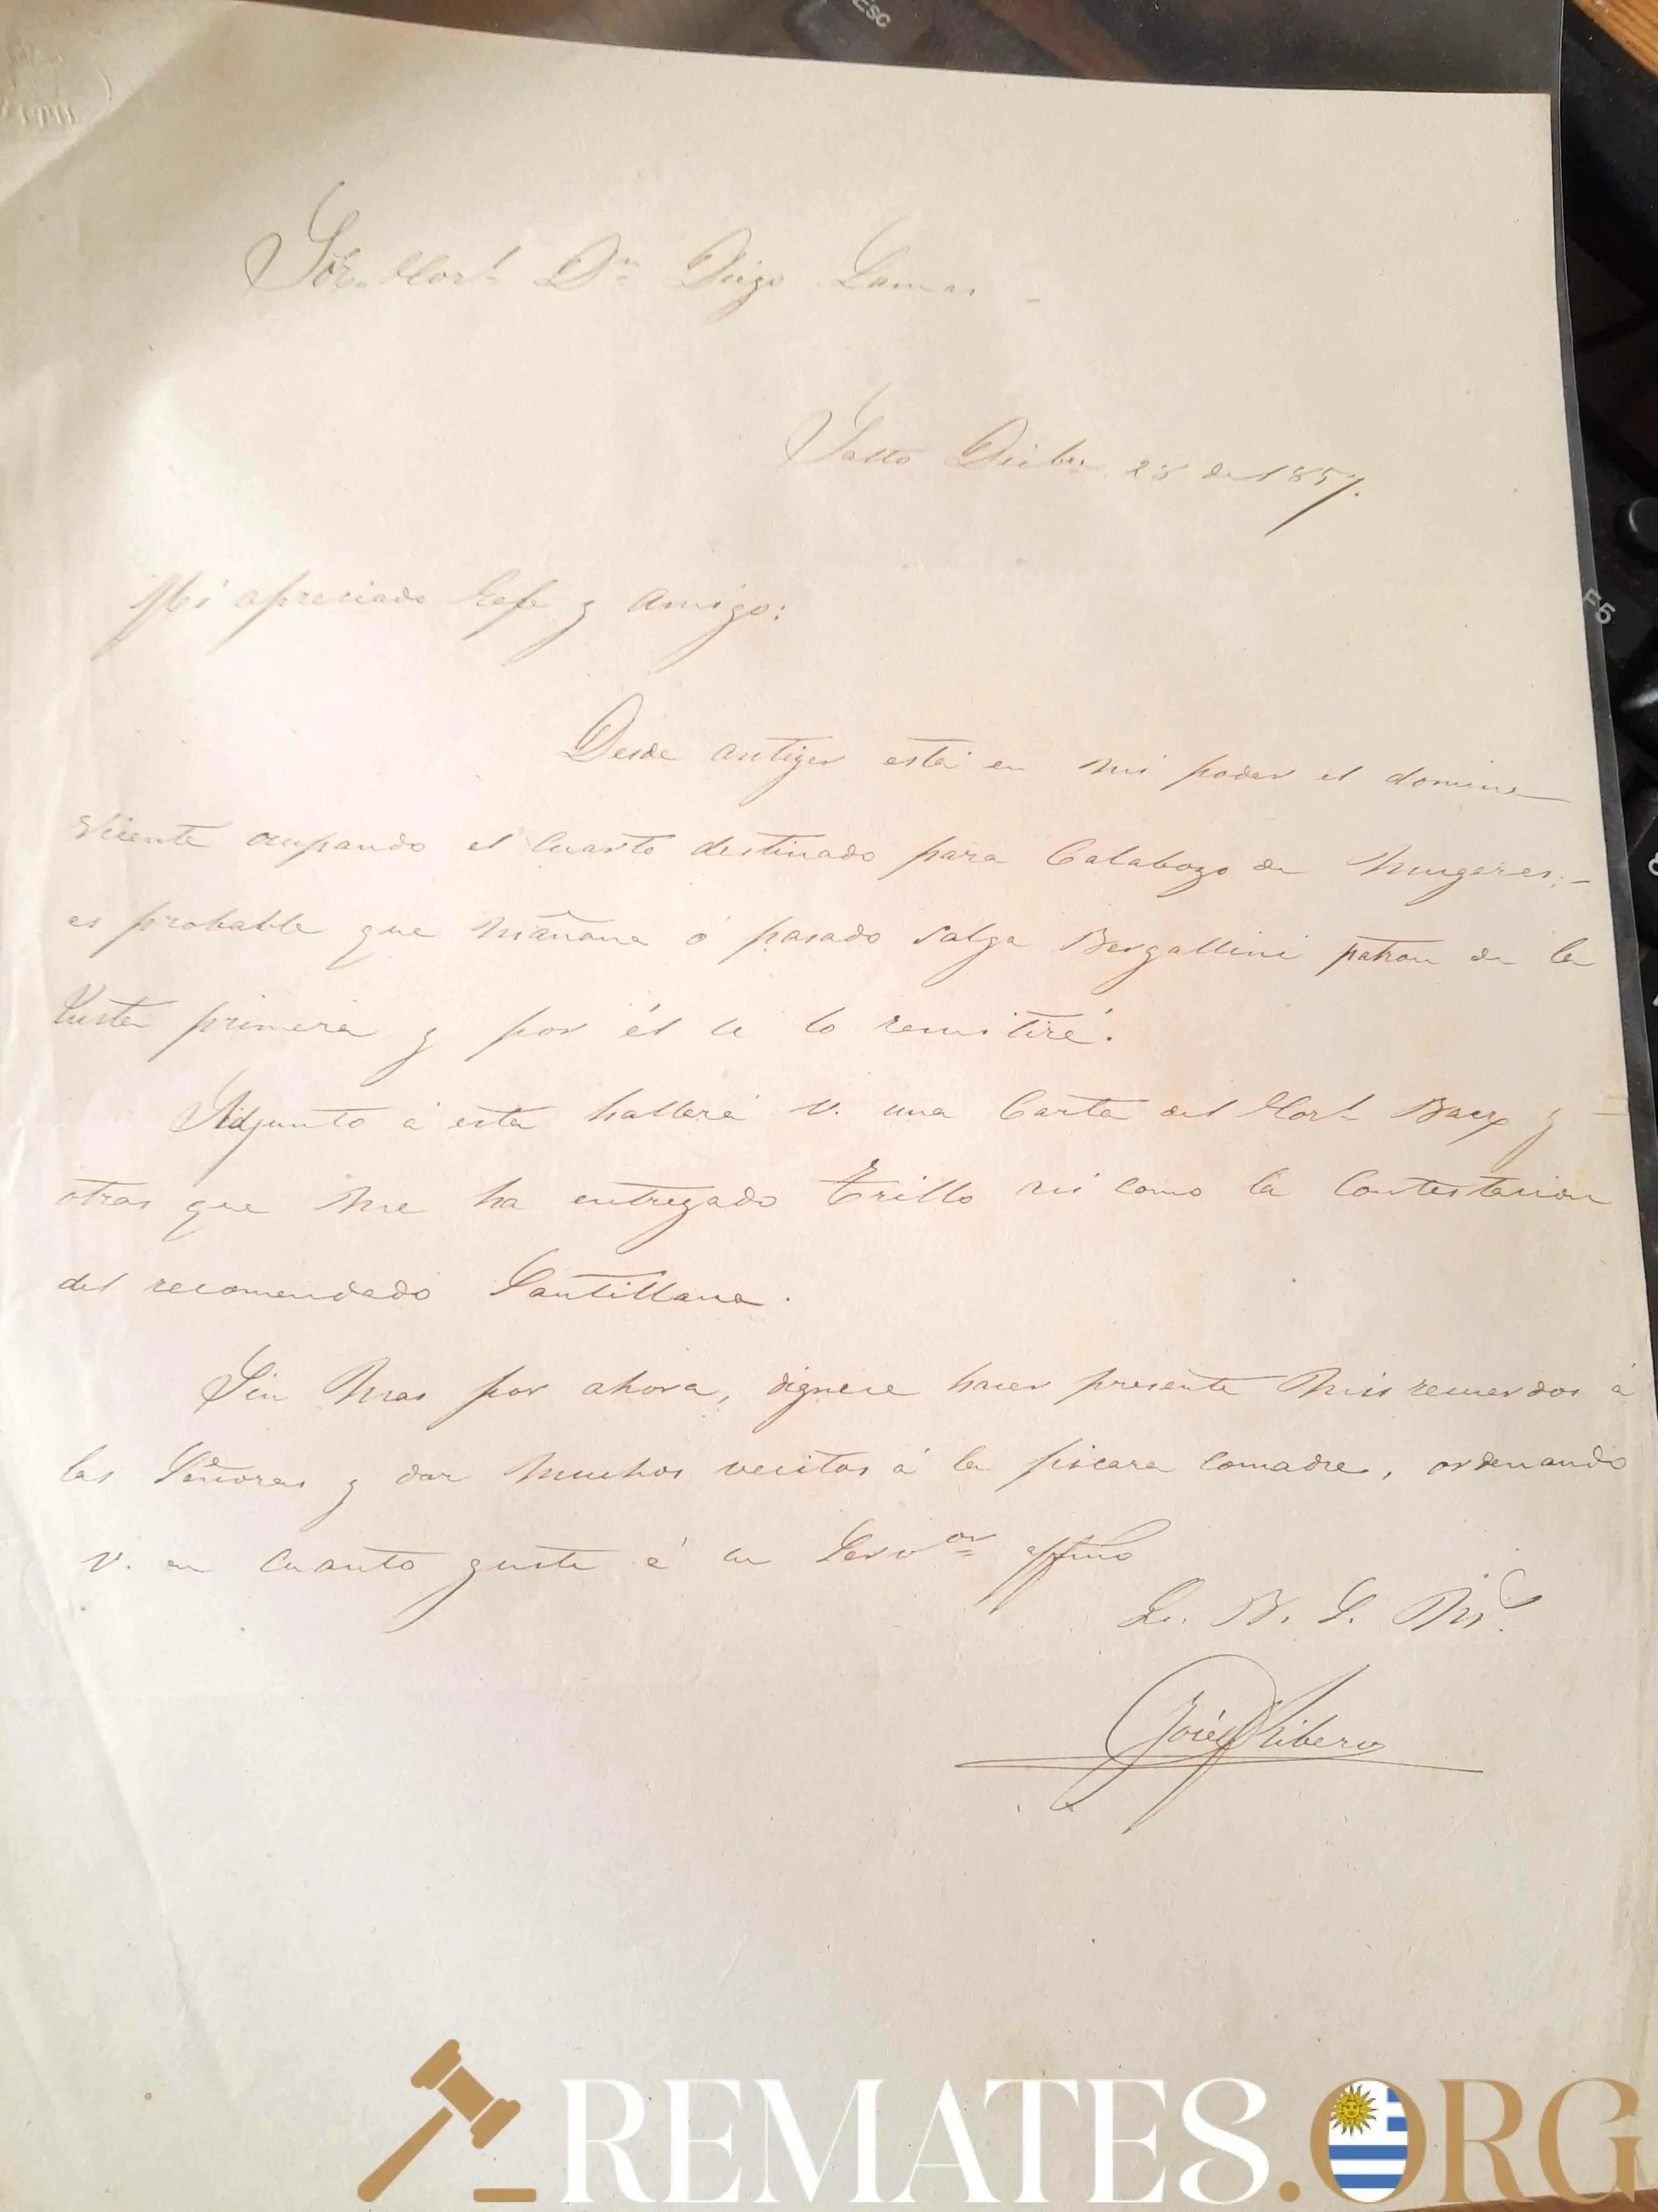 Sor. Corl. Dn. Diego Lamas
Salto Dicbre 28 de 1857.
Mi apreciado Gefe y amigo:
Desde antier está en mi poder el domine
Vicente ocupando el Cuarto destinado para Calabozo de Mugeres;
es probable que mañana ó pasado salga Bergallini patron de la
Lusta primera y por él se lo remitiré.
Adjunto á esta hallará V. una Carta del Corl. Baez y
otras que me ha entregado Trillo asi como la Contestacion
del recomendado Santillana.
Sin Mas por ahora, dignese hacer presente Mis recuerdos á
las Señoras y dar Muchos vecitos á la picara Comadre, ordenando
V. en Cuanto guste á su Servor affmo
Q. B. S. M.
José Ribero
REMATES.ORG
Esc
F5